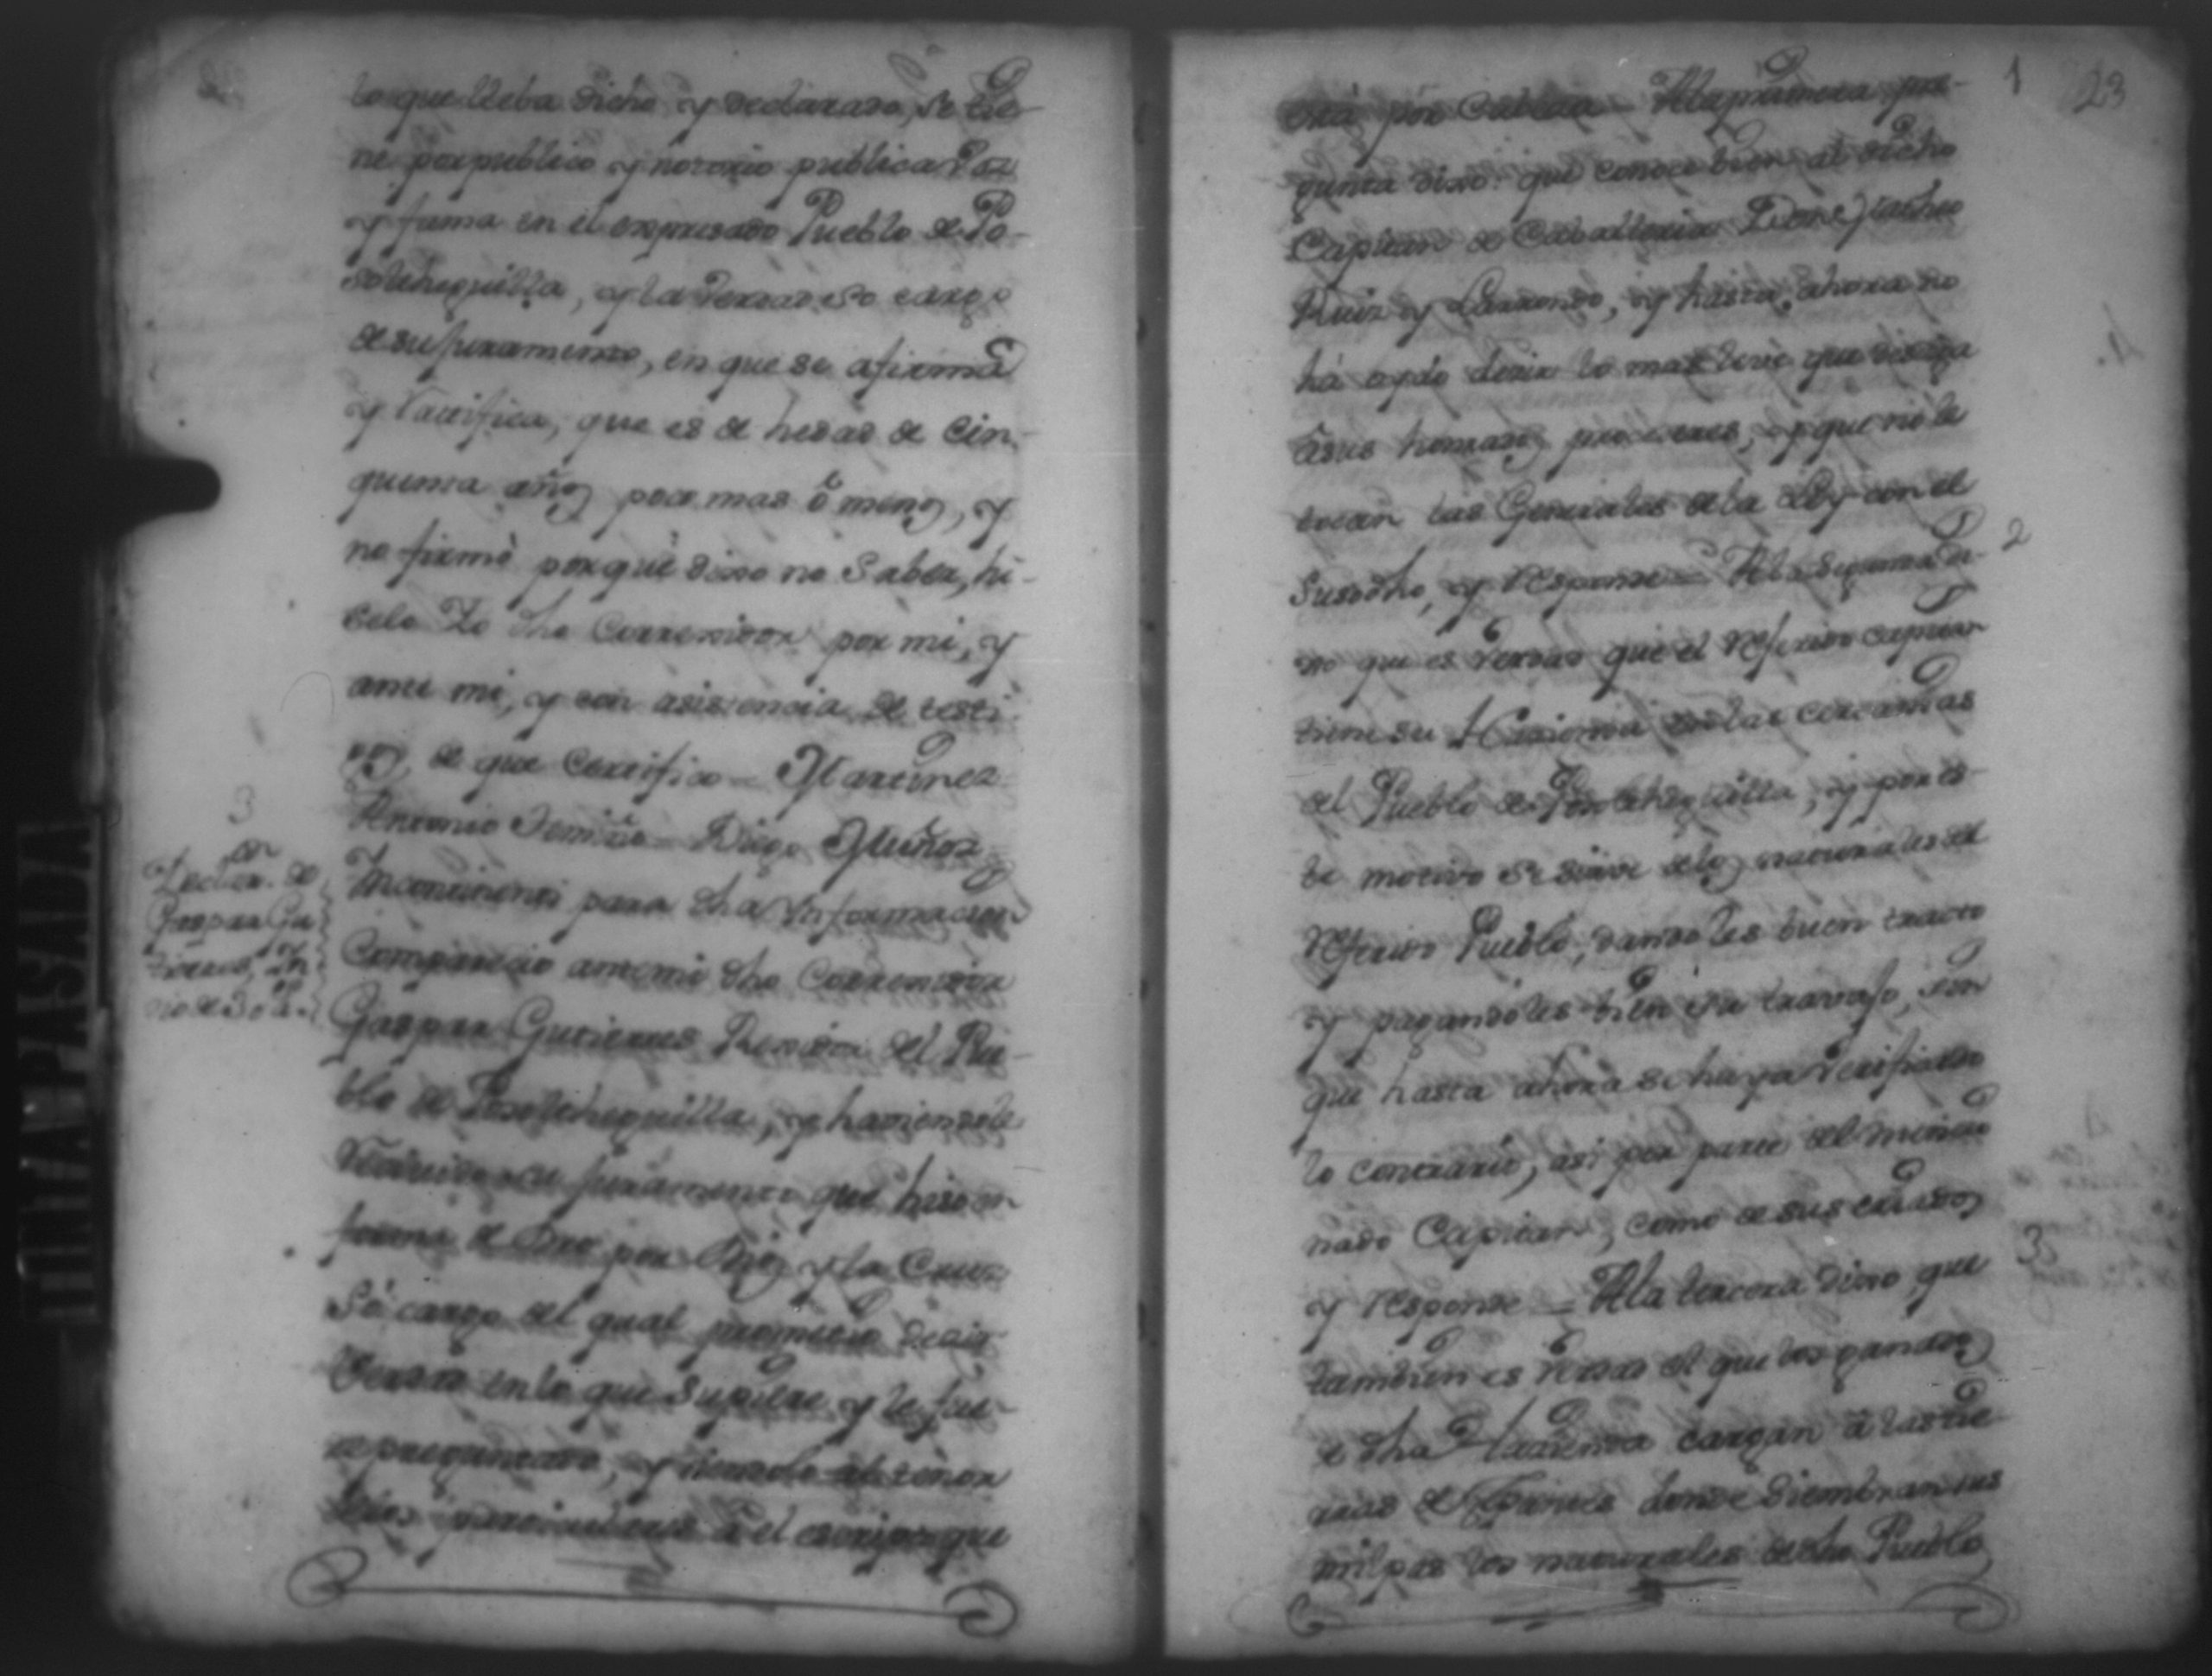 lo que lleba dicho y declarado, se tie-
ne por publico y notorio publica voz
y fama en el expresado Pueblo de Po-
soltheguilla, y la verdad so cargo
de su juramento, en que se afirma
y ratifica, que es de hedad de cin-
quenta años poco mas ô menos, y
no firmò porque dixo no saber, hi-
celo Yo dho Corregidor por mi, y
ante mi, y con asistencia de testi-
gos, de que certifico = Martinez
Antonio = Diego Muñoz
Incontinenti para dha Informacion
Comparecio ante mi dho Corregidor
Gaspar Gutierres Regidor del Pue-
blo de Posoltheguilla, y haviendole
recivido su juramento que hiso en
forma de dro por Dios y la Cruz
só cargo del qual prometio decir
verdad en lo que supiere y le fue-
re preguntado, y siendolo al tenor
del escripto que
3
Declan. de
Gaspar Gu
tierres, In
dio de 30 a.
1
23
está por Cabeza = A la primera pre-
gunta dixo: que conoce bien al dicho
Capitan de Caballeria Done Jacinto
Ruiz y Larrondo, y hasta ahora no
há oydo decir lo mas leve que desdiga
á sus honrados procederes, y que no le
tocan las Generales de la Ley con el
susodho, y responde = A la segunda di-
2
xo que es verdad que el referido capitan
tiene su Hazienda en las cercanias
del Pueblo de Posoltheguilla, y por es-
te motivo se sirve de los naturales del
referido Pueblo, dandoles buen tracto
y pagandoles bien su travajo, sin
que hasta ahora se haya verificado
lo contrario, asi por parte del mencio
nado Capitan, como de sus criados
y responde = A la tercera dixo, que
3
tambien es verdad el que los ganados
de dha Hazienda cargan â las tie-
rras de donde siembran sus
milpas los naturales de dho Pueblo